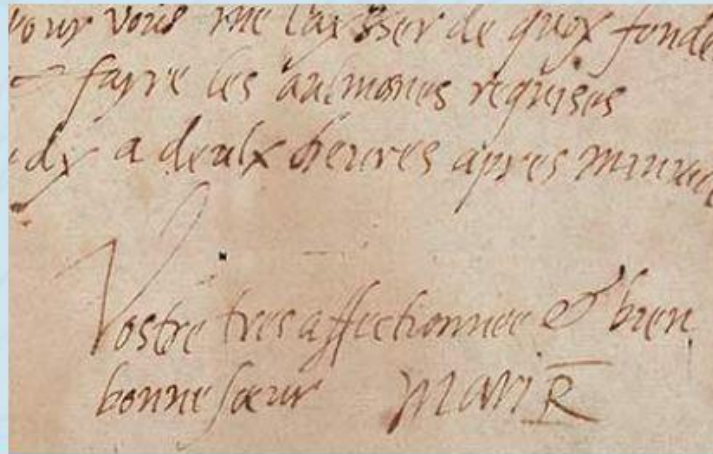 pour vous me laysser de quoy fonde
fayre les aulmones requises
dy a deulx heures apres minuit
Vostre tres affectionnee & bien
bonne sœur Mari R